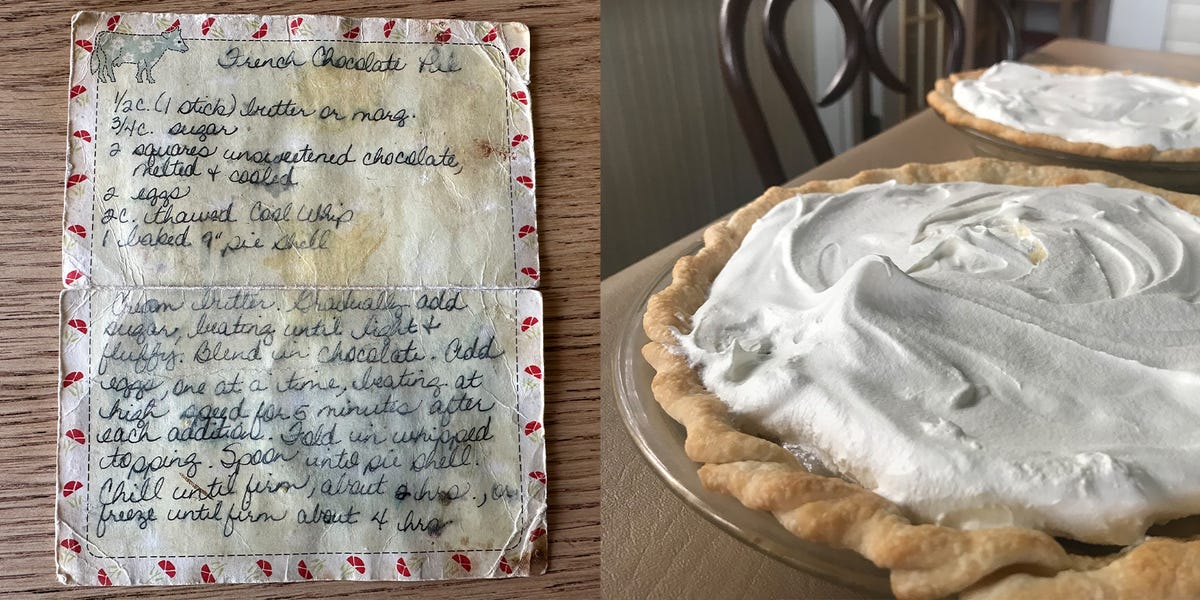 French Chocolate Pie
1/2c. (1 stick) butter or marg.
3/4c. sugar
2 squares unsweetened chocolate,
melted & cooled
2 eggs
2c. thawed Cool Whip
1 baked 9" pie shell
Cream butter. Gradually add
sugar, beating until light &
fluffy. Blend in chocolate. Add
eggs, one at a time, beating at
high speed for 5 minutes after
each addition. Fold in whipped
topping. Spoon into pie shell.
Chill until firm, about 2 hrs., or
freeze until firm about 4 hrs